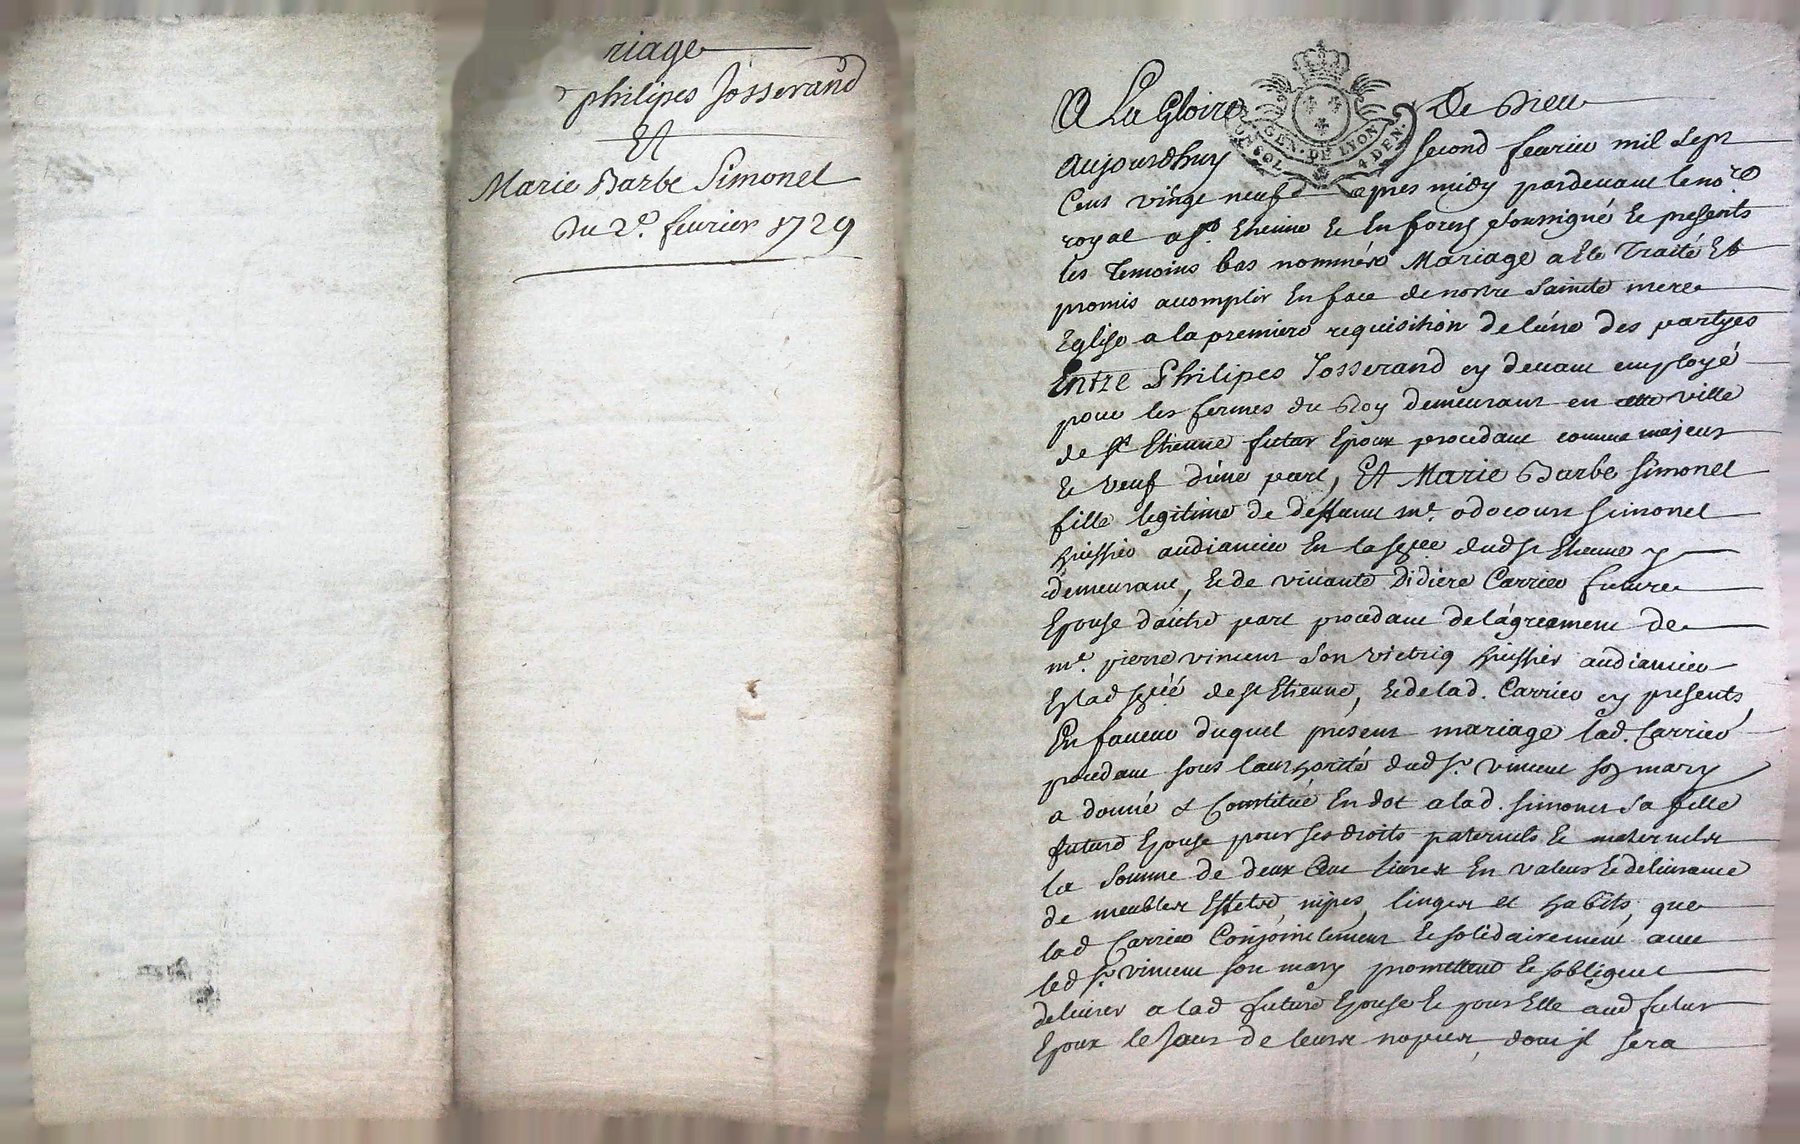 riage
philipes Josserand
Et
Marie Barbe Simonet
Du 2e. feurier 1729
A La Gloire De Dieu
GEN. DE LYON
UN SOL 4 DEN
aujourdhuy second feurier mil sept
Cens vingt neuf apres midy pardeuant le no.re
royal a st. Etienne & En forest soussigné & presents
les temoins bas nommés Mariage a Ete Traité Et
promis accomplir En face de nostre Sainte mere
Eglise a la premiere requisition de l'une des partyes
Entre Philipes Josserand cy deuant employé
pour les fermes du Roy demeurant en cette ville
de st Etienne futur Epoux procedant comme majeur
& veuf d'une part, Et Marie Barbe Simonet
fille legitime de deffunt me. odocour Simonet
huissier audiancier En la dud st Etienne y
demeurant, & de viuante Didiere Carrier future
Epouse d'autre part procedant de l'agreement de
me. pierre vincent son vietriq huissier audiancier
En lad de st Etienne, & de lad. Carrier cy presents
En faueur duquel present mariage lad. Carrier
procedant sous l'authorité dud sr. vincent son mary
a donné & Constitué En dot a lad. simonet sa fille
future Epouse pour ses droits paternels & maternels
la somme de deux Cent liures En valeur & deliurance
de meubles Effets, nipes, linges et habits, que
lad Carrier Conjointement & solidairement auec
led sr. vincent son mary promettent & s'obligent
deliurer a lad future Epouse & pour Elle aud futur
Epoux le Jour de leurs nopces, dont il sera